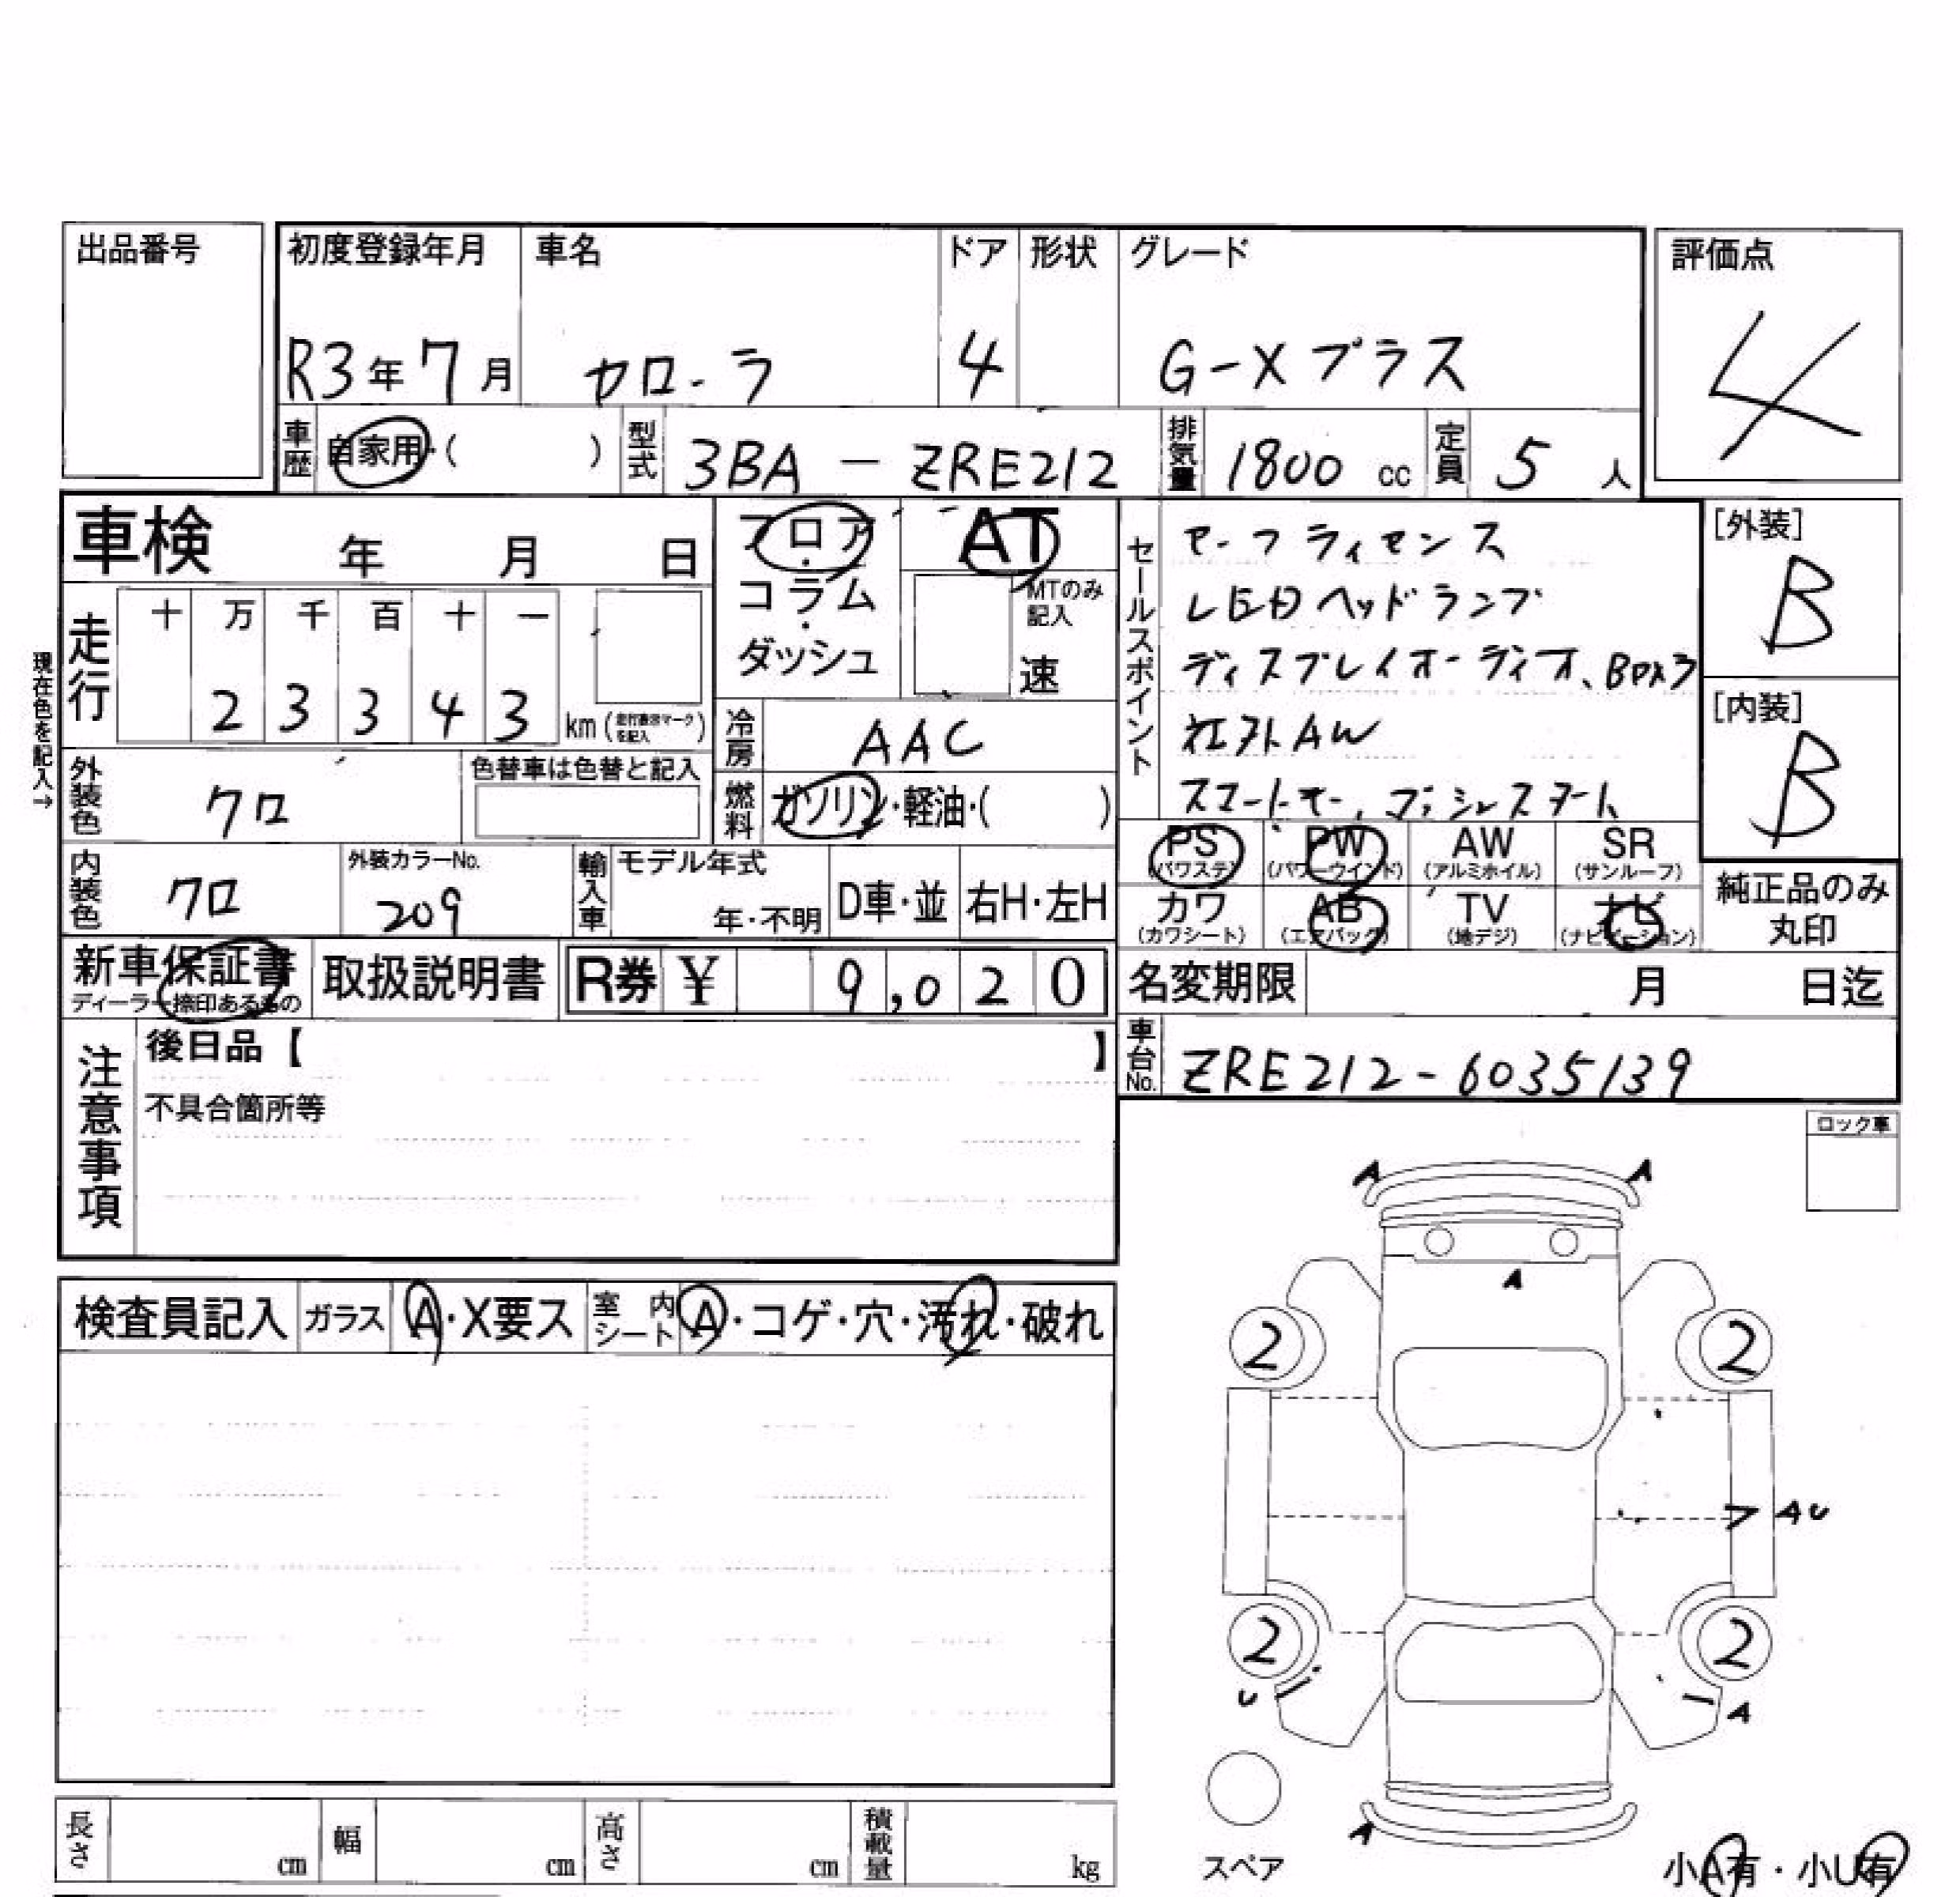 出品番号 初度登録年月 車名 ドア 形状 グレード 評価点
R3年7月 カローラ 4 G-Xプラス 4
車歴 自家用・( ) 型式 3BA-ZRE212 排気量 1800 cc 定員 5 人
車検 年 月 日 フロア・ AT
コラム・ MTのみ記入
ダッシュ 速
現在色を記入→
走行 十 万 千 百 十 一
2 3 3 4 3 km (走行表示マークを記入)
冷房 AAC
外装色 クロ 色替車は色替と記入
燃料 ガソリン・軽油・( )
内装色 クロ 外装カラーNo. 209 輸入車 モデル年式 年・不明 D車・並 右H・左H
セールスポイント
セーフティセンス
LEDヘッドランプ
ディスプレイオーディオ、
社外AW
スマートキー、プッシュスタート
[外装]
B
[内装]
B
PS (パワステ) PW (パワーウインド) AW (アルミホイル) SR (サンルーフ)
カワ (カワシート) AB (エアバッグ) TV (地デジ) ナビ (ナビゲーション)
純正品のみ
丸印
新車保証書 ディーラー捺印あるもの 取扱説明書 R券 ¥ 9,020
名変期限 月 日迄
車台No. ZRE212-6035139
注意事項
後日品【 】
不具合箇所等
ロック車
検査員記入 ガラス A・X要ス 室内シート A・コゲ・穴・汚れ・破れ
A A
A
2 2
AU
2 2
U A
A
スペア
小A有・小U有
長さ cm 幅 cm 高さ cm 積載量 kg